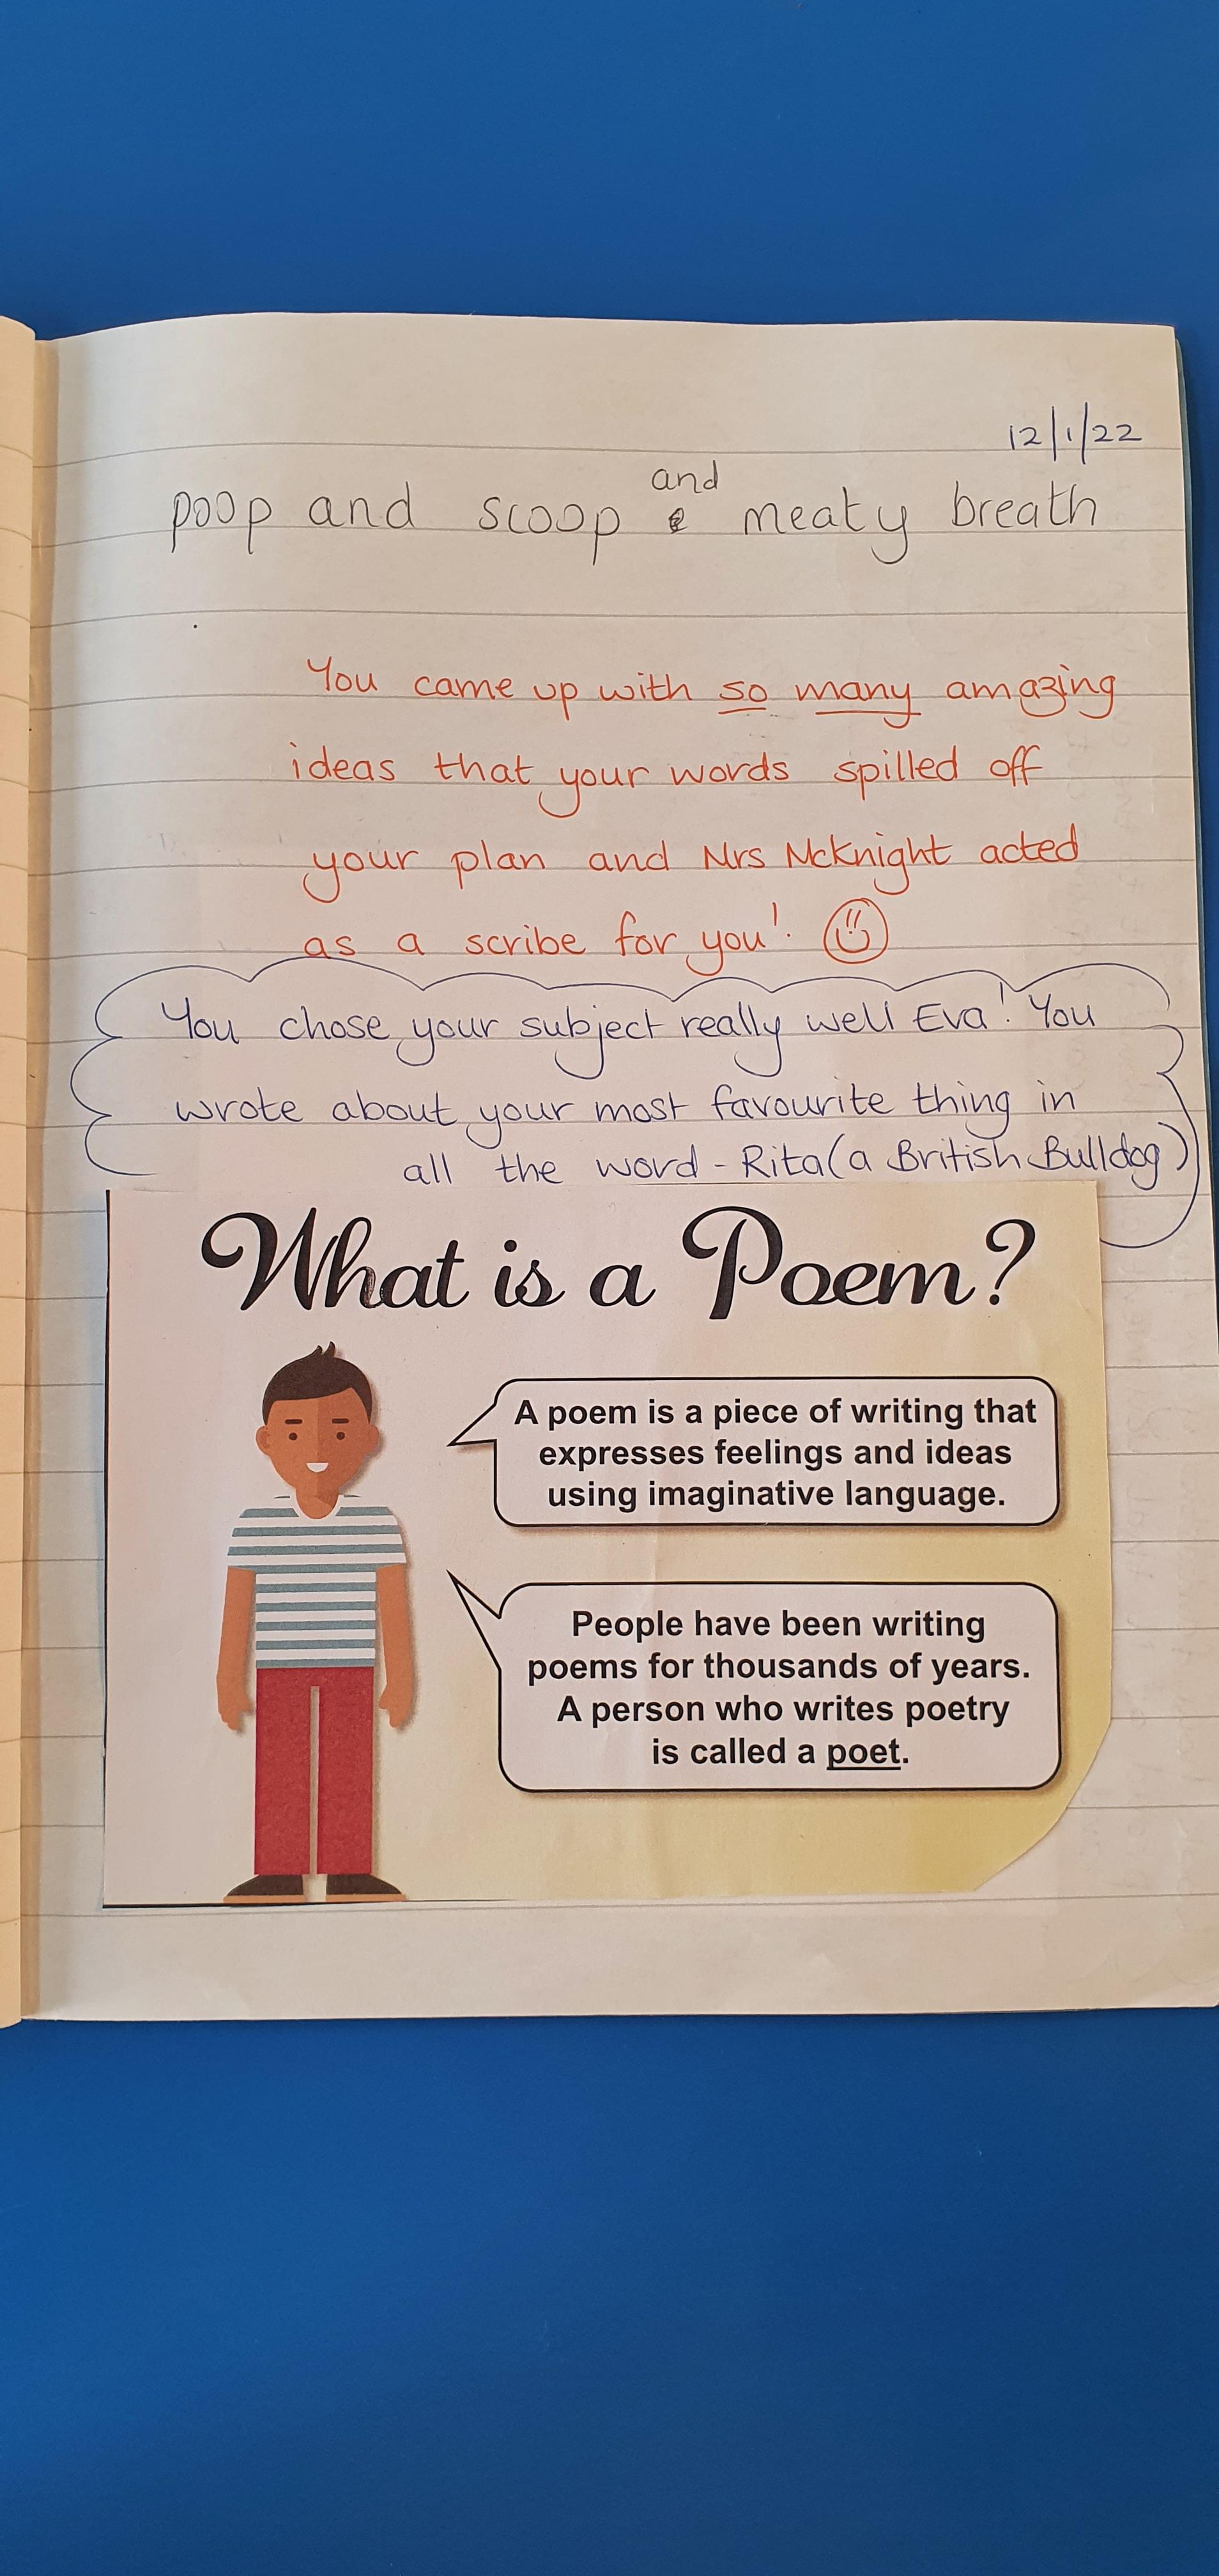 12/1/22
and
poop and scoop meaty breath
You came up with so many amazing
ideas that your words spilled off
your plan and Mrs McKnight acted
as a scribe for you!
You chose your subject really well Eva! You
wrote about your most favourite thing in
all the word - Rita (a British Bulldog)
What is a Poem?
A poem is a piece of writing that
expresses feelings and ideas
using imaginative language.
People have been writing
poems for thousands of years.
A person who writes poetry
is called a poet.